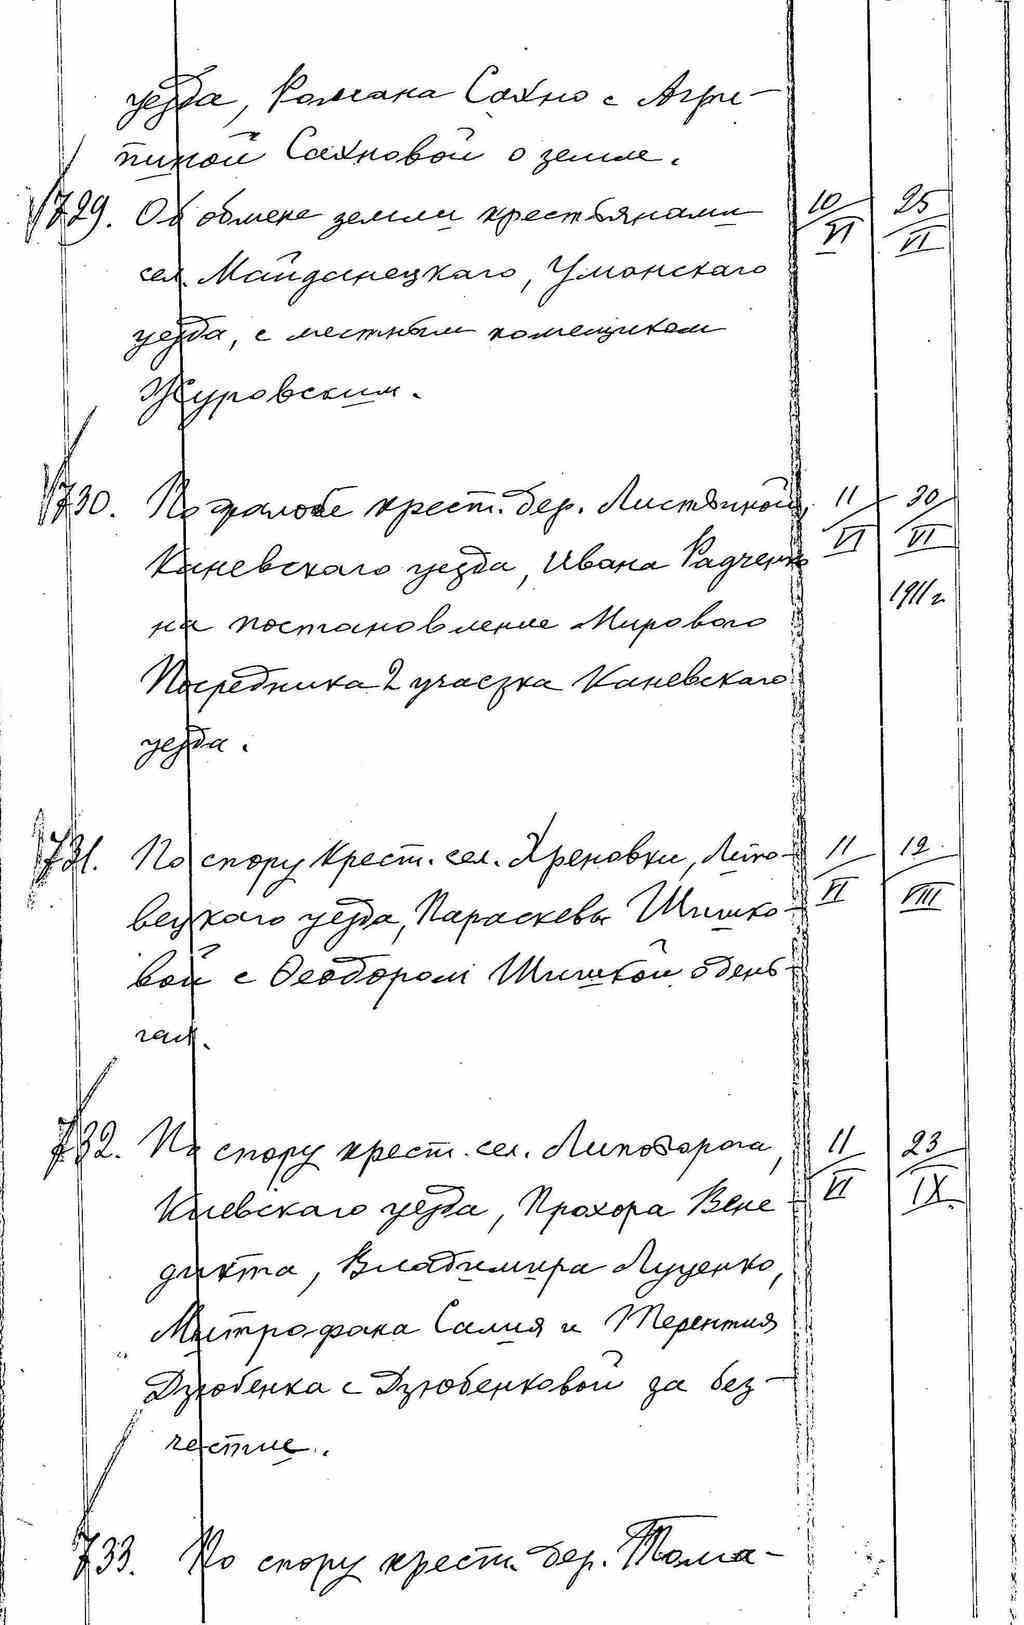 уезда, Романа Сахно с Агри-
пиной Сахновой о земле.
729. Об обмене земли крестьянами 10/VI 25/VI
сел. Майданецкаго, Уманскаго
уезда, с местным помещиком
Журовским.
730. По жалобе крест. дер. Листвиной, 11/VI 30/VI
Каневскаго уезда, Ивана Радченко 1911 г.
на постановление Мирового
Посредника 2 участка Каневскаго
уезда.
731. По спору крест. сел. Хреновки, Липо- 11/VI 12/VIII
вецкаго уезда, Параскевы Шишко-
вой с Феодором Шишкой о день-
гах.
732. По спору крест. сел. Липовврога, 11/VI 23/IX.
Киевскаго уезда, Прохора Вене-
дикта, Владимира Луценко,
Митрофана Салия и Терентия
Дзюбенка с Дзюбенковой за без-
честие.
733. По спору крест. дер. Толма-